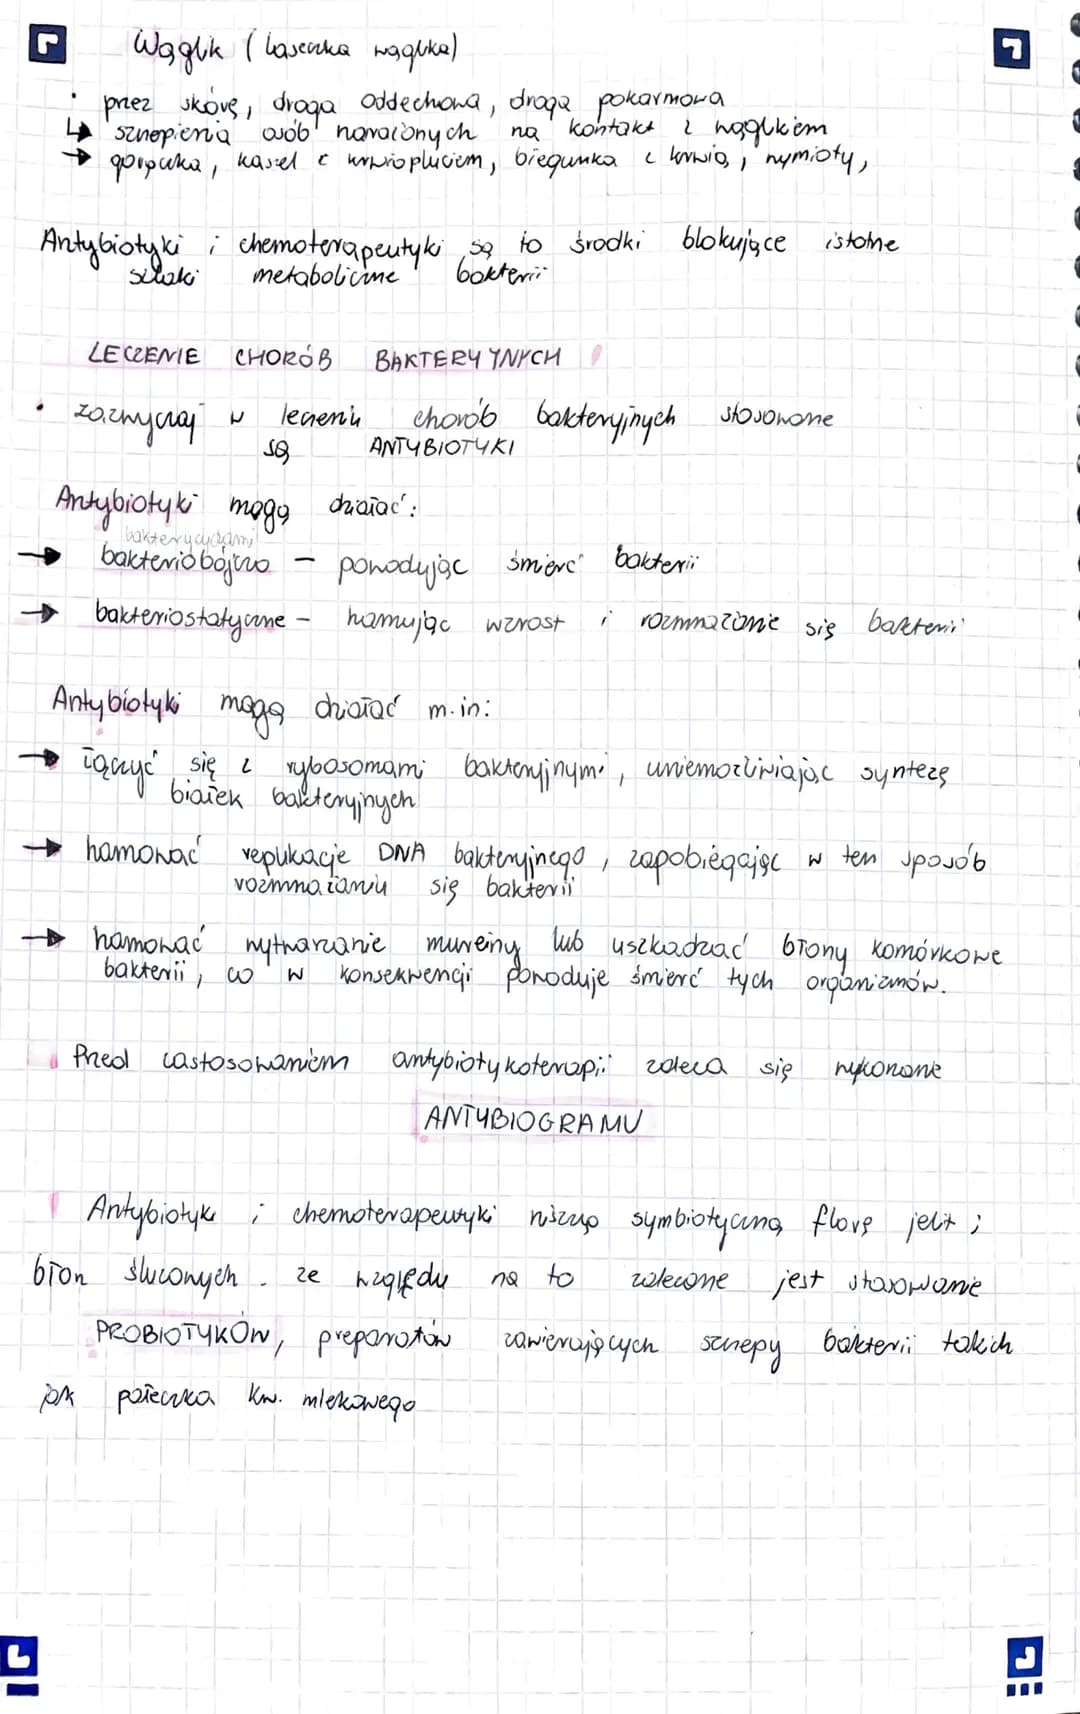 Wąglik (laseczka wąglika)
• przez skórę, droga oddechowa, droga pokarmowa
↳ szczepienia osób narażonych na kontakt z wąglikiem
→ gorączka, kaszel z krwiopluciem, biegunka z krwią, wymioty,
Antybiotyki i chemoterapeutyki są to środki blokujące istotne
szlaki metaboliczne bakterii
LECZENIE CHORÓB BAKTERYYNYCH
• zazwyczaj w leczeniu chorób bakteryjnych stosowane
są ANTYBIOTYKI
Antybiotyki mogą działać:
bakterycydami
→ bakteriobójczo - powodując śmierć bakterii
→ bakteriostatyczne - hamując wzrost i rozmnażanie się bakterii
Antybiotyki mogą działać m.in:
→ łączyć się z rybosomami bakteryjnymi, uniemożliwiając syntezę
białek bakteryjnych
→ hamować replikacje DNA bakteryjnego, zapobiegając w ten sposób
rozmnażaniu się bakterii
→ hamować wytwarzanie mureiny lub uszkadzać błony komórkowe
bakterii, co w konsekwencji powoduje śmierć tych organizmów.
Przed zastosowaniem antybiotykoterapii zaleca się wykonanie
ANTYBIOGRAMU
Antybiotyki i chemoterapeutyki niszczą symbiotyczną florę jelit i
błon śluzowych. ze względu na to zalecane jest stosowanie
PROBIOTYKÓW, preparatów zawierających szczepy bakterii takich
jak pałeczka kw. mlekowego